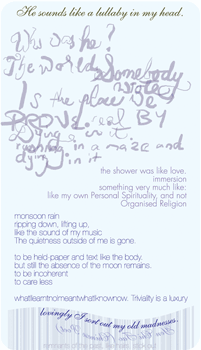 He sounds like a lullaby in my head.
Who was he?
The World Somebody
Is the place we
PROVE real BY
dying in it.
running in a maze and
dying in it
the shower was like love.
immersion
something very much like:
like my own Personal Spirituality, and not
Organised Religion
monsoon rain
ripping down, lifting up,
like the sound of my music
The quietness outside of me is gone.
to be held-paper and text like the body.
but still the absence of the moon remains.
to be incoherent
to care less
whatIearntnolmeantwhatIknownow. Triviality is a luxury
lovingly I sort out my old madnesses.